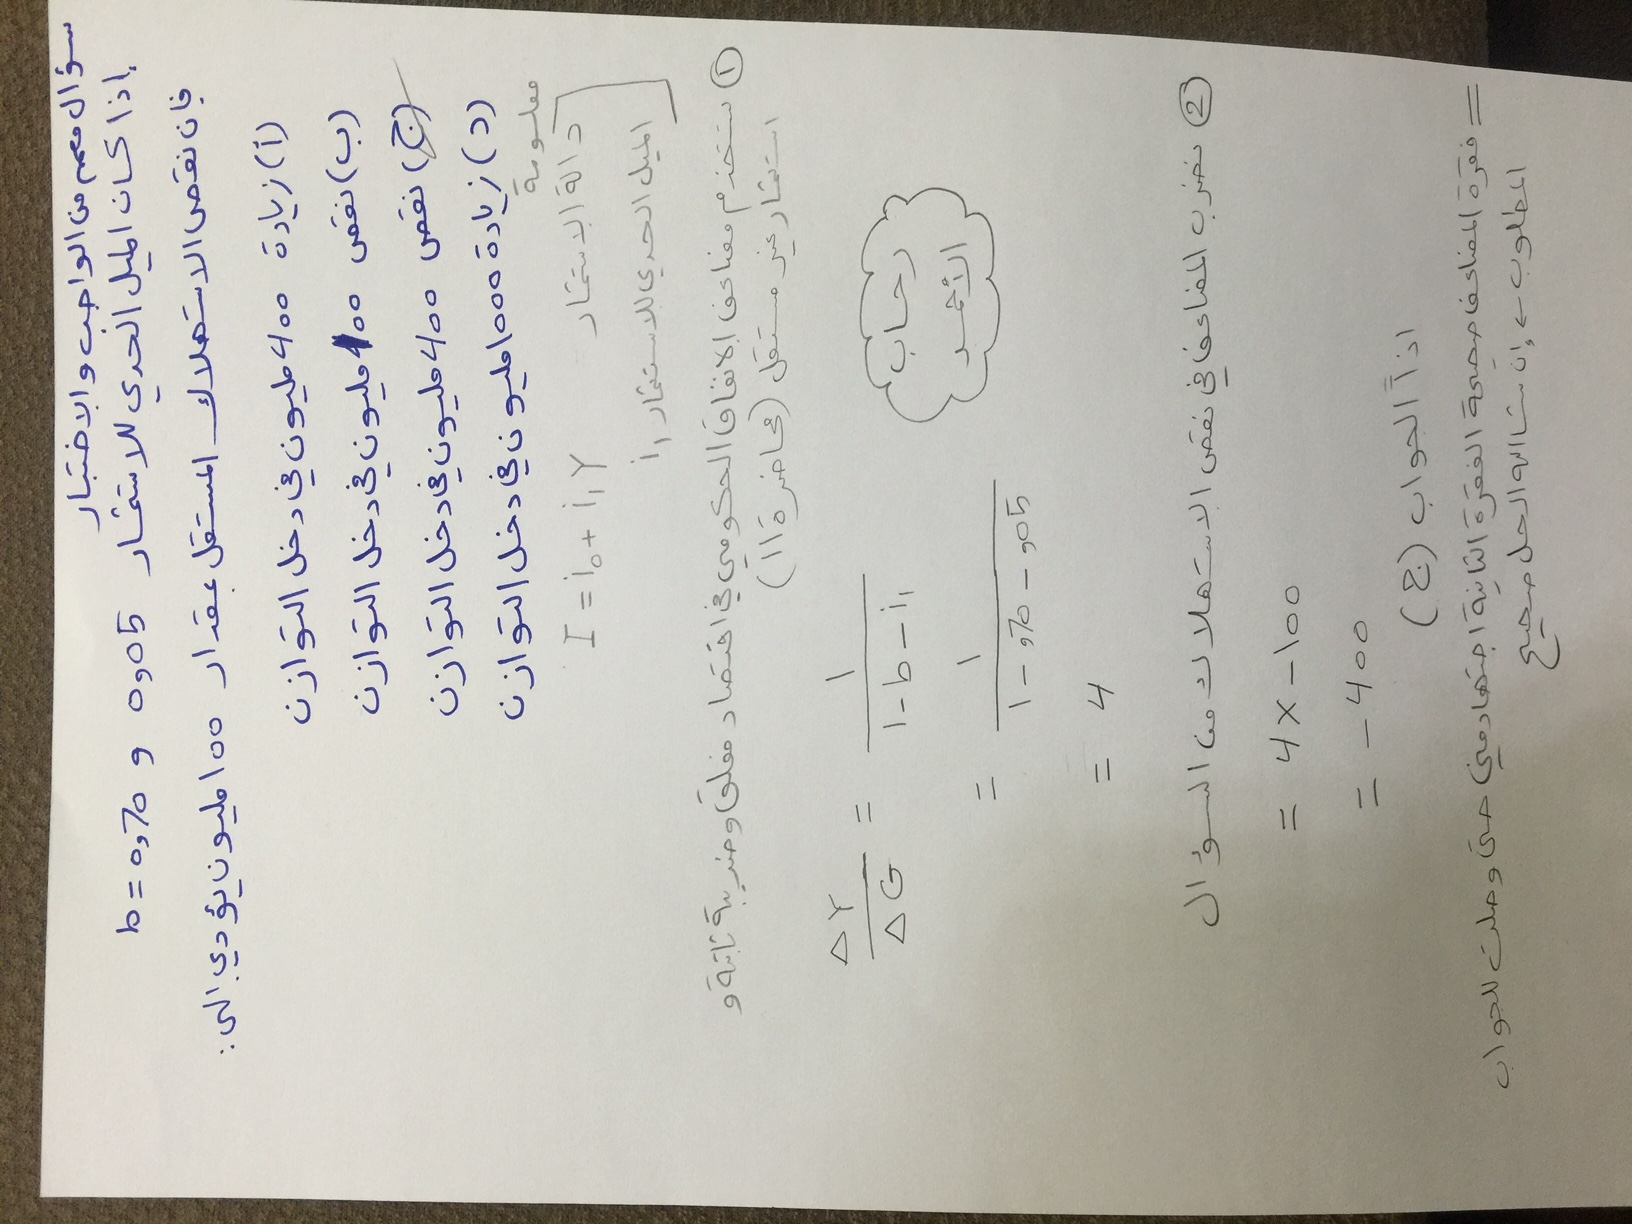 سؤال مهم من الواجب والاختبار
إذا كان الميل الحدي للاستثمار 0,05 و b = 0,70
فإن نقص الاستهلاك المستقل بمقدار 100 مليون يؤدي إلى:
(أ) زيادة 400 مليون في دخل التوازن
(ب) نقص 100 مليون في دخل التوازن
(ج) نقص 400 مليون في دخل التوازن
(د) زيادة 1000 مليون في دخل التوازن
معلومة
دالة الاستثمار I = i0 + i1Y
الميل الحدي للاستثمار i1
① نستخدم مضاعف الانفاق الحكومي في اقتصاد مغلق وضريبة ثابتة و
استثمار غير مستقل (محاضرة 11)
ΔY/ΔG = 1/(1-b-i1)
رحاب
الأحمد
= 1/(1-,70-,05)
= 4
② نضرب المضاعف في نقص الاستهلاك من السؤال
= 4 x -100
= -400
اذاً الجواب (ج)
= فقرة المضاعف صحيحة الفقرة الثانية اجتهاد مني حتى وصلت للجواب
المطلوب ← إن شاء الله الحل صحيح